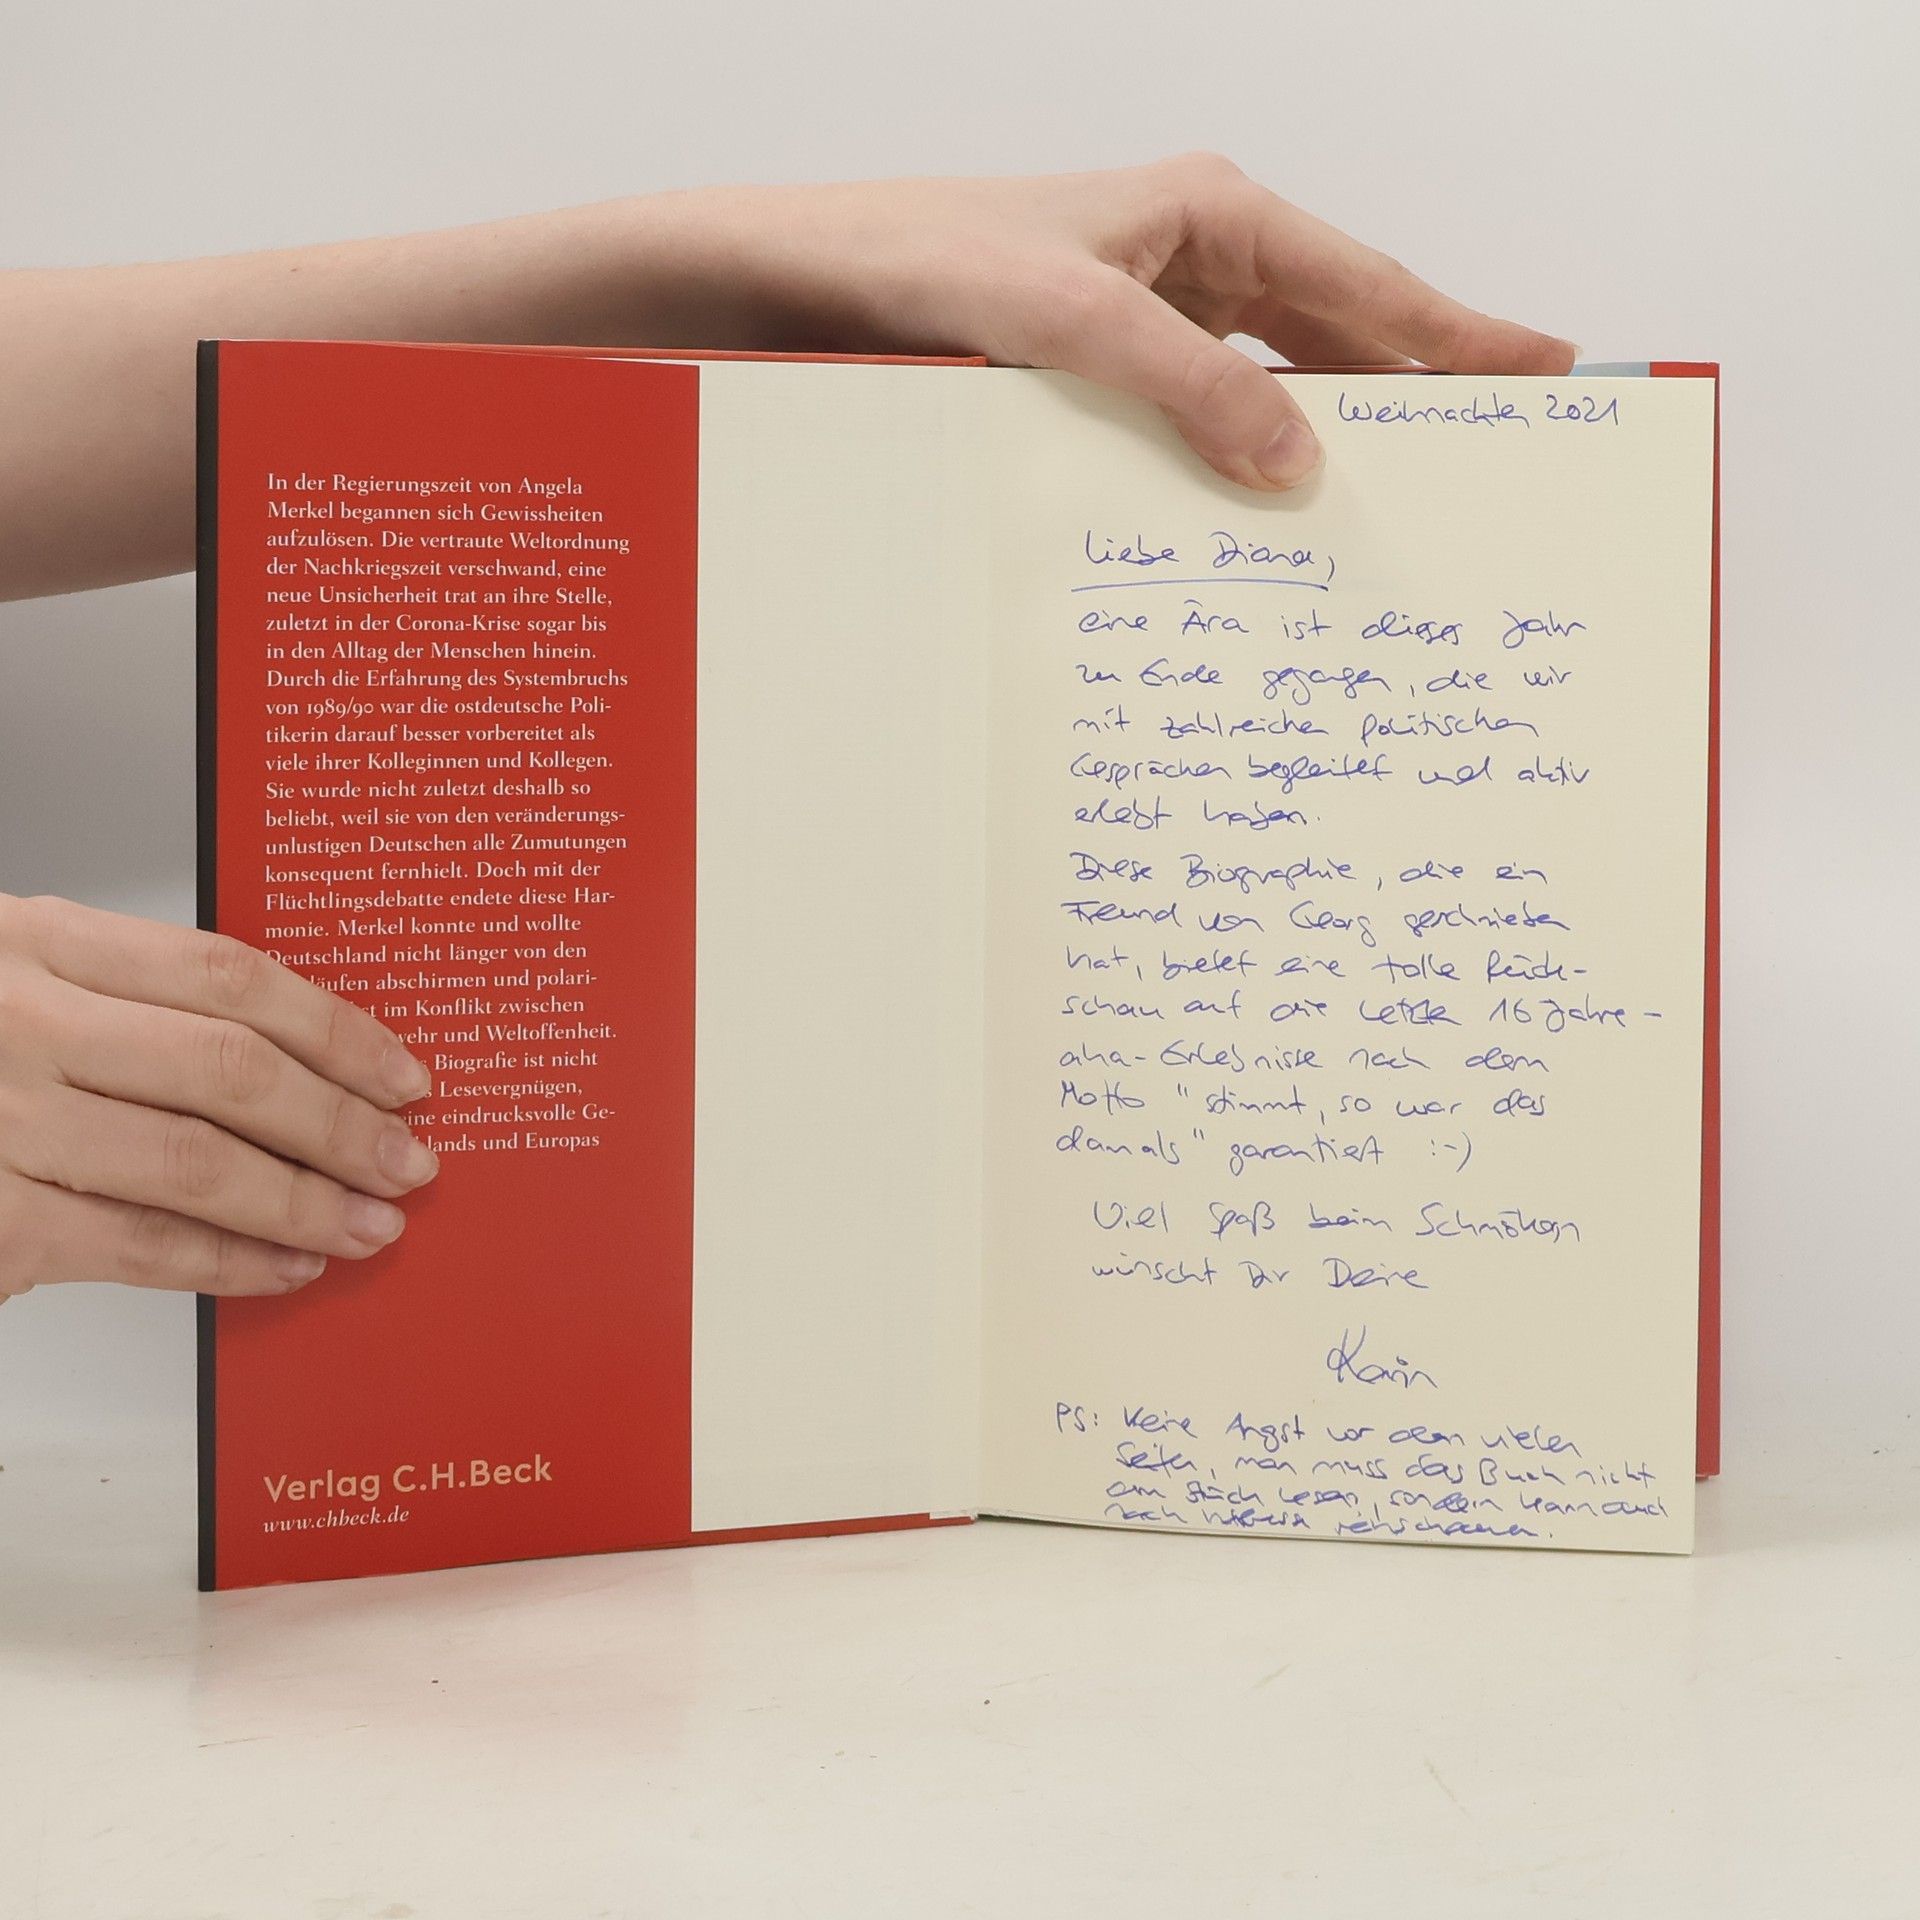 In der Regierungszeit von Angela
Merkel begannen sich Gewissheiten
aufzulösen. Die vertraute Weltordnung
der Nachkriegszeit verschwand, eine
neue Unsicherheit trat an ihre Stelle,
zuletzt in der Corona-Krise sogar bis
in den Alltag der Menschen hinein.
Durch die Erfahrung des Systembruchs
von 1989/90 war die ostdeutsche Poli-
tikerin darauf besser vorbereitet als
viele ihrer Kolleginnen und Kollegen.
Sie wurde nicht zuletzt deshalb so
beliebt, weil sie von den veränderungs-
unlustigen Deutschen alle Zumutungen
konsequent fernhielt. Doch mit der
Flüchtlingsdebatte endete diese Har-
monie. Merkel konnte und wollte
Deutschland nicht länger von den
äufen abschirmen und polari-
im Konflikt zwischen
wehr und Weltoffenheit.
Biografie ist nicht
Lesevergnügen,
eine eindrucksvolle Ge-
lands und Europas
Verlag C.H.Beck
www.chbeck.de
Weihnachten 2021
Liebe Diana,
eine Ära ist dieses Jahr
zu Ende gegangen, die wir
mit zahlreichen politischen
Gesprächen begleitet und aktiv
erlebt haben.
Diese Biographie, die ein
Freund von Georg geschrieben
hat, bietet eine tolle Rück-
schau auf die letzte 16 Jahre -
aha-Erlebnisse nach dem
Motto "stimmt, so war das
damals" garantiert :-)
Viel Spaß beim Schmökern
wünscht Dir Deine
Karin
PS: Keine Angst vor den vielen
Seiten, man muss das Buch nicht
am Stück lesen, sondern kann auch
nach Interesse reinschauen.